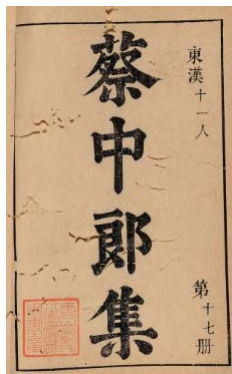 東漢十一人
蔡中郎集
第十七册